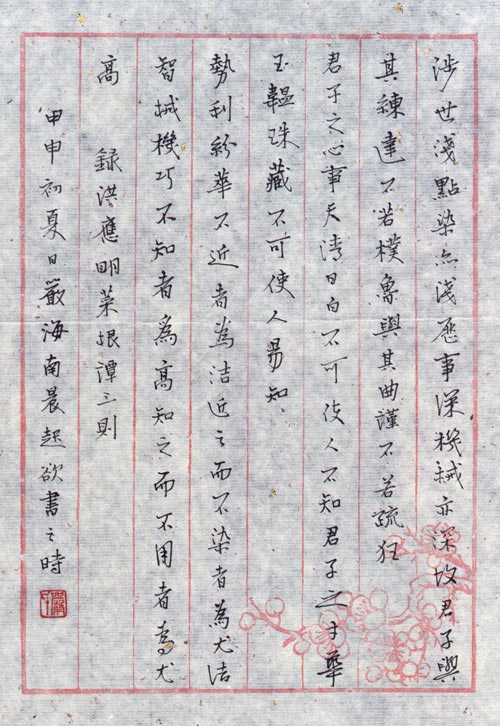 涉世淺點染亦淺歷事深機械亦深故君子與
其練達不若樸魯與其曲謹不若疏狂
君子之心事天清日白不可使人不知君子之才華
玉韞珠藏不可使人易知、
勢利紛華不近者為潔近之而不染者為尤潔
智械機巧不知者為高知之而不用者為尤
高　錄洪應明菜根譚三則
甲申初夏日嚴海南晨起欲書之時